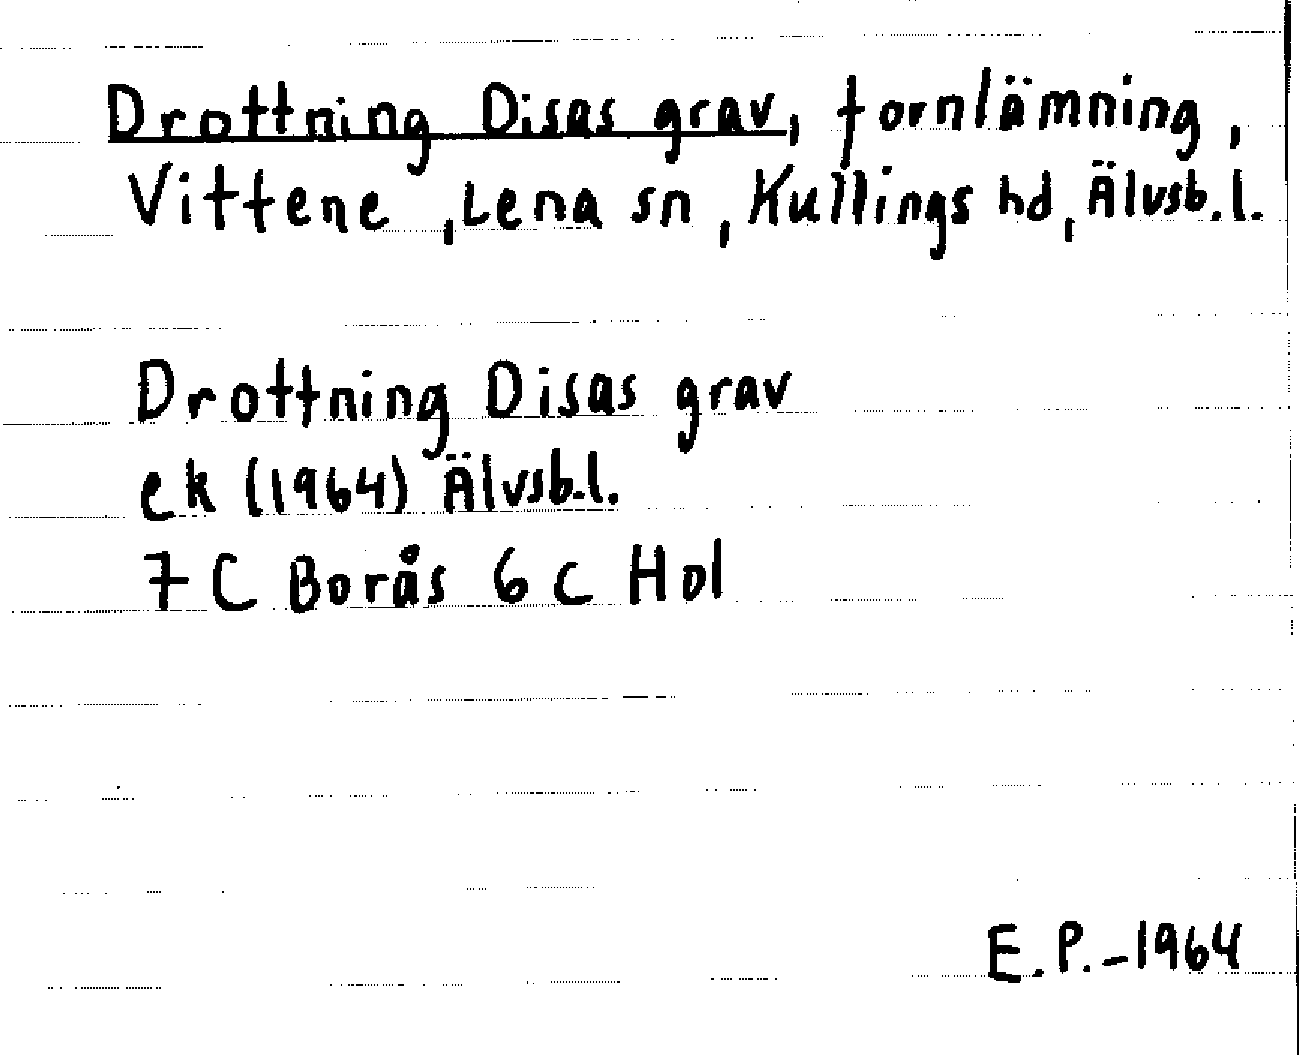 Drottning Disas grav, fornlämning,
Vittene, Lena sn, Kullings hd, Älvsb.l.
Drottning Disas grav
ek (1964) Älvsb.l.
7 C Borås 6 c Hol
E.P.-1964